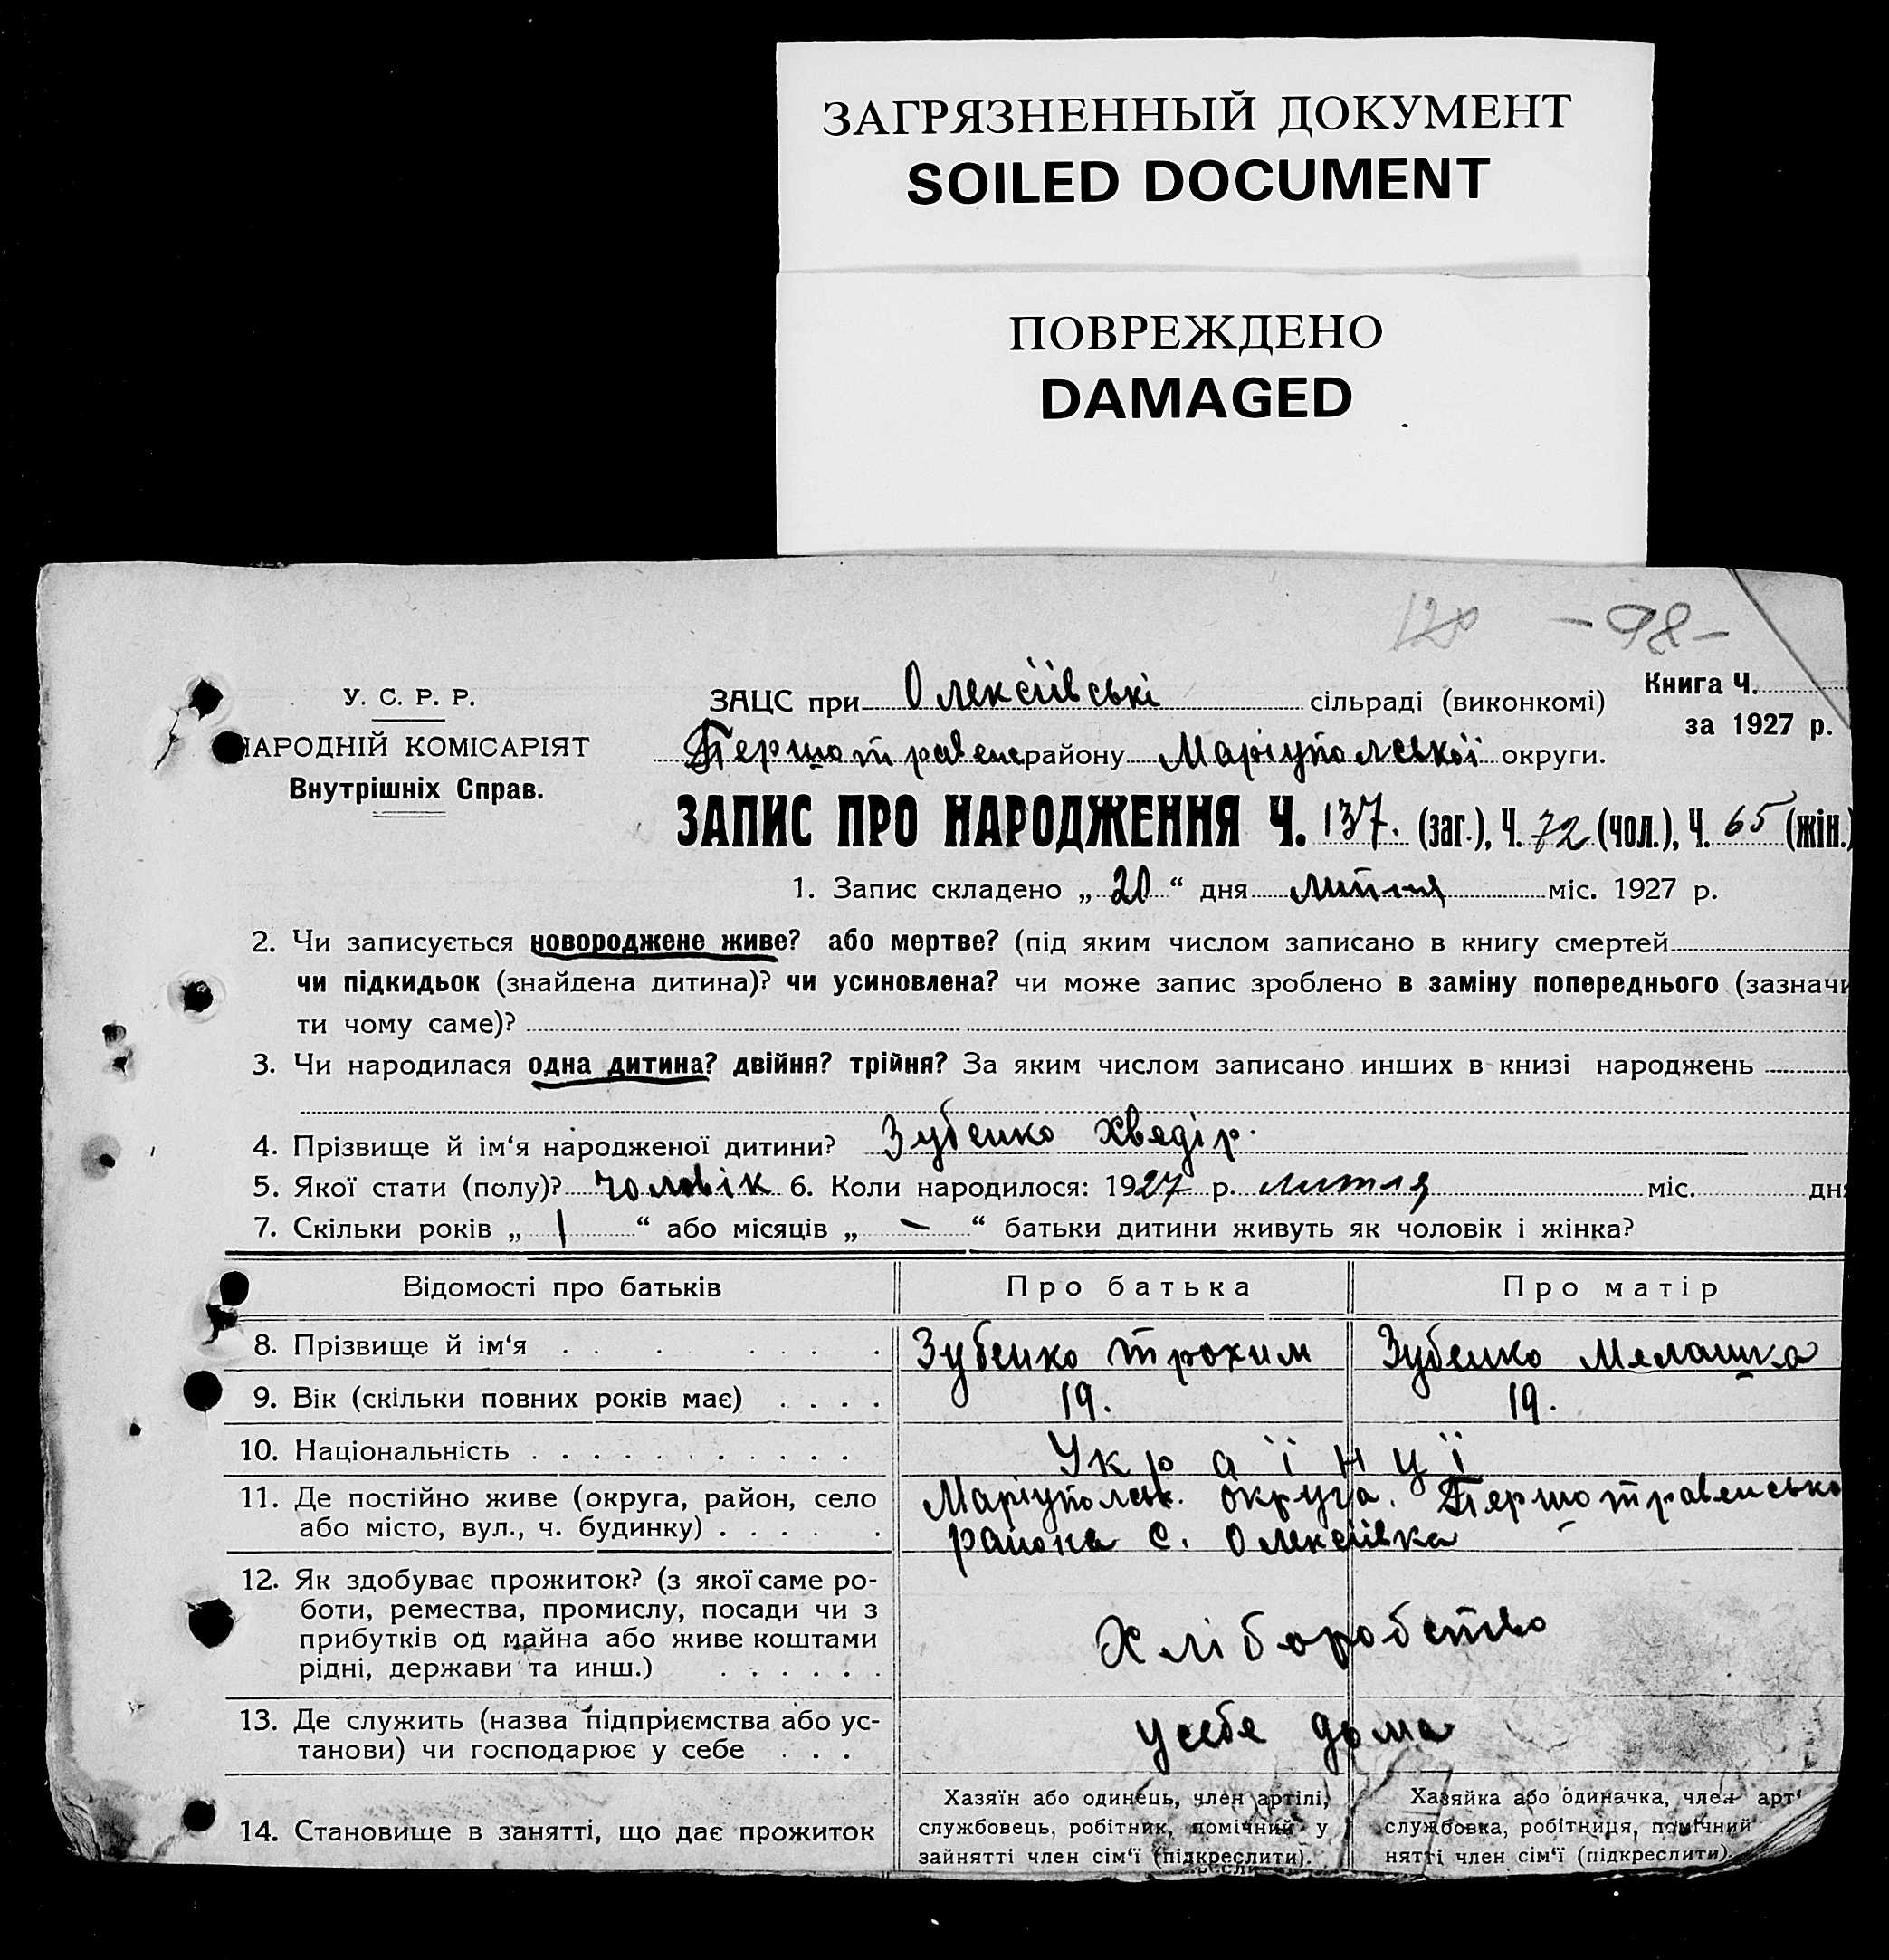 ЗАГРЯЗНЕННЫЙ ДОКУМЕНТ
SOILED DOCUMENT
ПОВРЕЖДЕНО
DAMAGED
120 -98-
У. С. Р. Р.
НАРОДНІЙ КОМІСАРІЯТ
Внутрішніх Справ.
ЗАЦС при Олексіївські сільраді (виконкомі)
Першотравенс району Маріупольської округи.
Книга Ч.
за 1927 р.
ЗАПИС ПРО НАРОДЖЕННЯ Ч. 137. (заг.), Ч. 72 (чол.), Ч. 65 (жін.)
1. Запис складено „ 20 “ дня липня міс. 1927 р.
2. Чи записується новороджене живе? або мертве? (під яким числом записано в книгу смертей
чи підкидьок (знайдена дитина)? чи усиновлена? чи може запис зроблено в заміну попереднього (зазначи
ти чому саме)?
3. Чи народилася одна дитина? двійня? трійня? За яким числом записано инших в книзі народжень
4. Прізвище й ім‘я народженої дитини? Зубенко Хведір.
5. Якої стати (полу)? чоловік 6. Коли народилося: 1927 р. липня міс. дня
7. Скільки років „ 1 “ або місяців „ – “ батьки дитини живуть як чоловік і жінка?
Відомості про батьків Про батька Про матір
8. Прізвище й ім‘я Зубенко Трохим Зубенко Мелашка
9. Вік (скільки повних років має) 19. 19.
10. Національність Українці
11. Де постійно живе (округа, район, село Маріупольск. округа. Першотравенсько
або місто, вул., ч. будинку) района с. Олексіївка
12. Як здобуває прожиток? (з якої саме ро-
боти, ремества, промислу, посади чи з
прибутків од майна або живе коштами
рідні, держави та инш.) Хліборобство
13. Де служить (назва підприємства або ус-
танови) чи господарює у себе у себе дома
14. Становище в занятті, що дає прожиток
Хазяїн або одинець, член артілі,
службовець, робітник, помічний у
зайнятті член сім‘ї (підкреслити).
Хазяйка або одиначка, член арті
службовка, робітниця, помічний
нятті член сім‘ї (підкреслити)